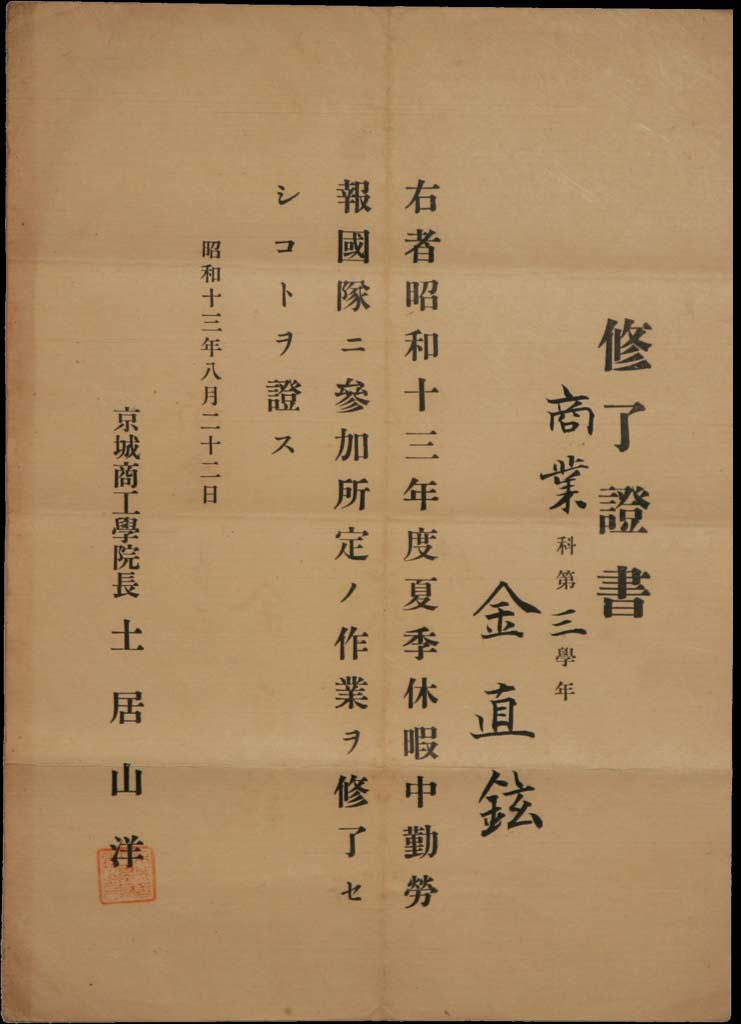 修了證書
商業科第三學年
金直鉉
右者昭和十三年度夏季休暇中勤勞
報國隊ニ參加所定ノ作業ヲ修了セ
シコトヲ證ス
昭和十三年八月二十二日
京城商工學院長 土居山洋